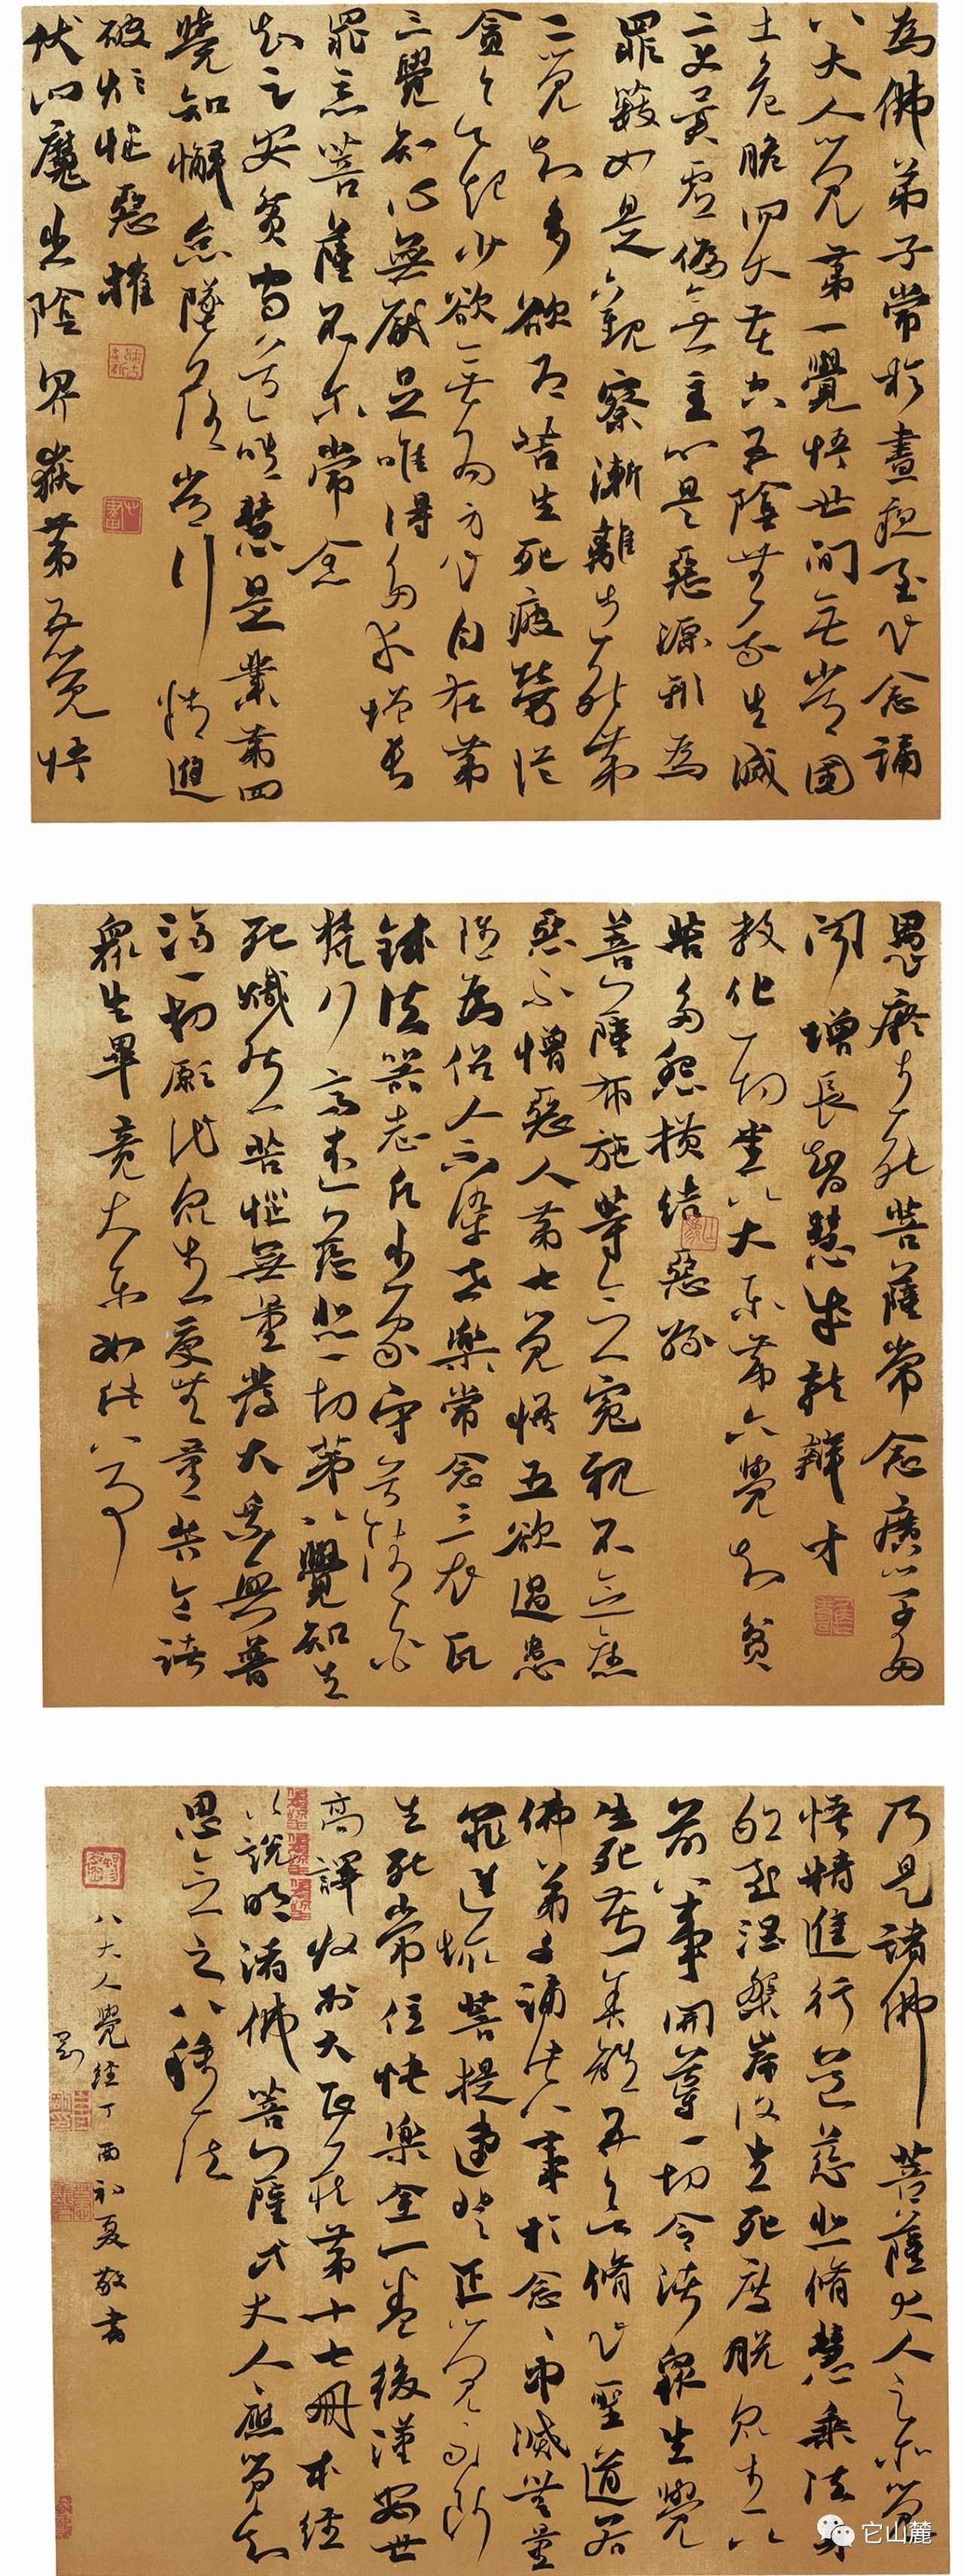 為佛弟子常於晝夜至心念誦
八大人覺第一覺悟世間無常國
土危脆四大苦空五陰無我生滅
變異虛偽無主心是惡源形為
罪藪如是觀察漸離生死第
二覺知多欲為苦生死疲勞從
貪欲起少欲無為身心自在第
三覺知心無厭足唯得多求增長
罪惡菩薩不爾常念
知足安貧守道唯慧是業第四
覺知懈怠墜落常行精進
破煩惱惡摧
伏四魔出陰界獄第五覺悟
愚癡生死菩薩常念廣學多
聞增長智慧成就辯才
教化一切悉以大樂第六覺知貧
苦多怨橫結惡緣
菩薩布施等念冤親不念舊
惡不憎惡人第七覺悟五欲過患
雖為俗人不染世樂常念三衣瓦
缽法器志願出家守道清白
梵行高遠慈悲一切第八覺知生
死熾然苦惱無量發大乘心普
濟一切願代眾生受無量苦令諸
眾生畢竟大樂如此八事
乃是諸佛菩薩大人之所覺
悟精進行道慈悲脩慧乘法身
船至涅槃岸復還生死度脫眾生以
前八事開導一切令諸眾生覺
生死苦捨離五欲脩心聖道若
佛弟子誦此八事於念念中滅無量
罪進趣菩提速登正覺永斷
生死常住快樂全一卷後漢安世
高譯收於大正藏第十七冊本經
以說明諸佛菩薩等大人應覺知
思念之八種法
八大人覺經丁酉初夏敬書
它山麓